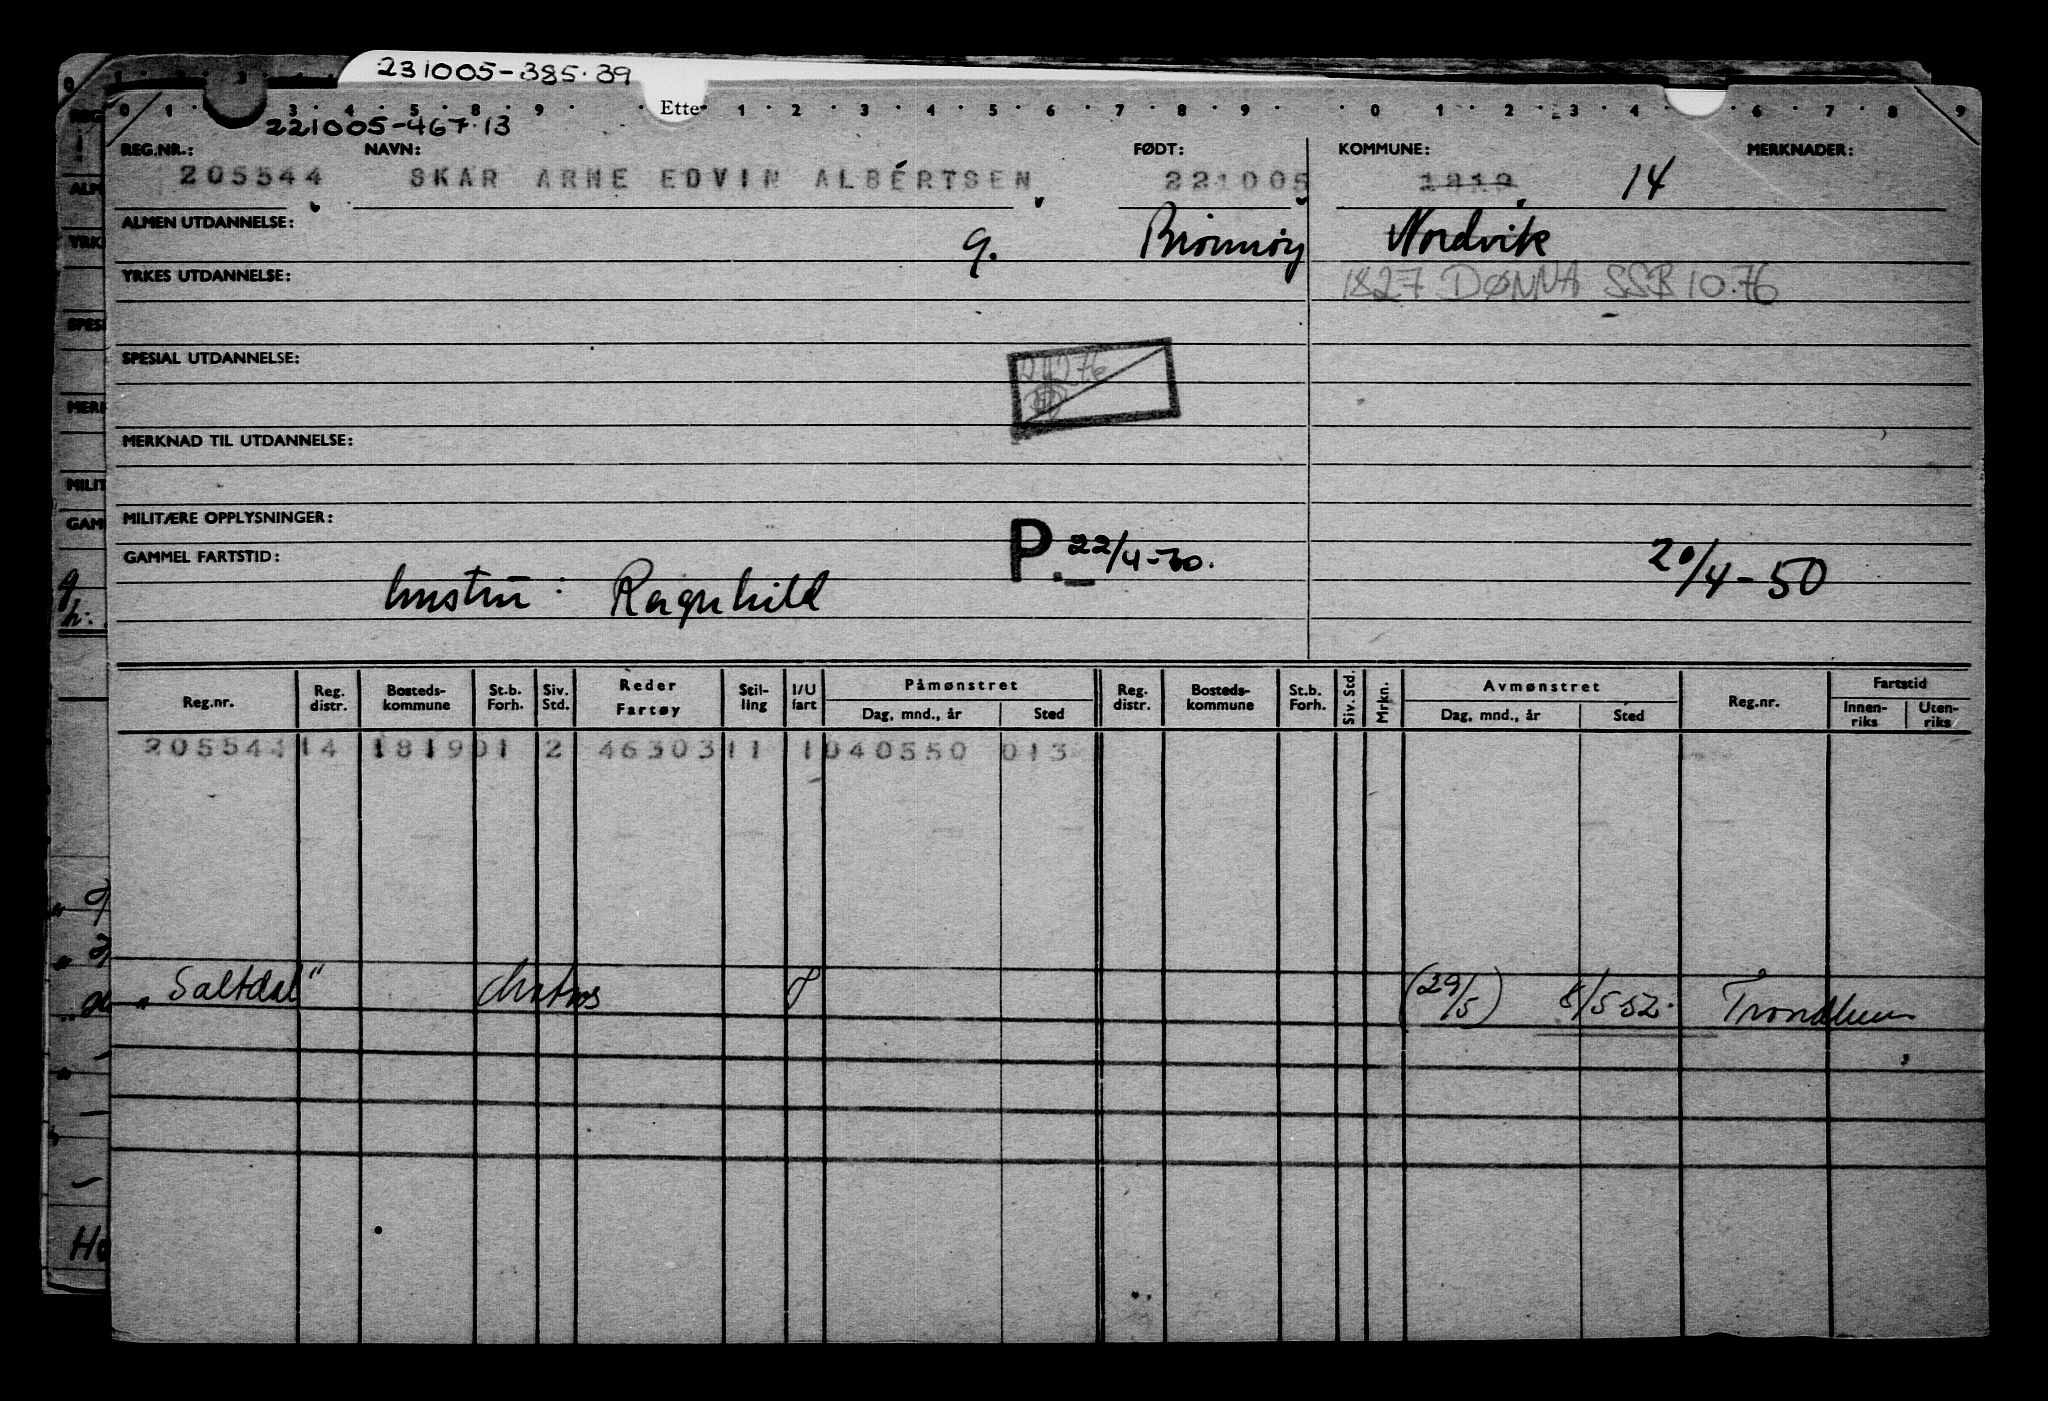 231005-385.39
0 1 3 4 5 8 9 Ette 1 2 3 4 5 6 7 8 9 0 1 2 3 4 6 7 8 9
221005-467.13
REG.NR.: NAVN: FØDT: KOMMUNE: MERKNADER:
205544 SKAR ARNE EDVIN ALBÉRTSEN 221005 1819 14
ALMEN UTDANNELSE: g. Brønnøy Nordvik
YRKES UTDANNELSE: 1827 DØNNA SSB 10.76
SPESIAL UTDANNELSE:
MERKNAD TIL UTDANNELSE:
MILITÆRE OPPLYSNINGER:
GAMMEL FARTSTID: P. 22/4-70. 20/4-50
hustru: Ragnhild
Reg.nr. Reg. distr. Bosteds-kommune St.b. Forh. Siv. Std. Reder Fartøy Stil-ling I/U fart Påmønstret Dag, mnd., år Sted Reg. distr. Bosteds-kommune St.b. Forh. Siv. Std. Mrkn. Avmønstret Dag, mnd., år Sted Reg.nr. Fartstid Innen-riks Uten-riks
205544 14 1819 01 2 46303 11 1 040550 013
"Saltdal" Matros (29/5) 8/5 52. Trondheim